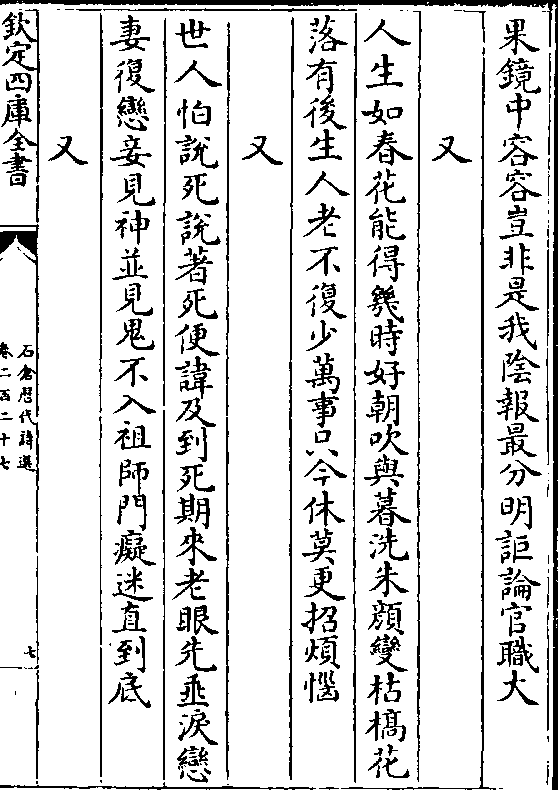 果鏡中容容豈非是我陰報最分明詎論官職大
又
人生如春花能得幾時好朝吹與暮洗朱顔變枯槁花
落有後生人老不復少萬事只今休莫更招煩惱
又
世人怕說死說著死便諱及到死期來老眼先垂淚戀
妻復戀妾見神並見鬼不入祖師門癡迷直到底
又
欽定四庫全書
石倉歴代詩選
卷二百二十七
七